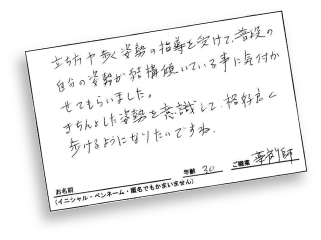 立ち方や歩く姿勢の指導を受けて、普段の
自分の姿勢が結構傾いている事に気付か
せてもらいました。
きちんとした姿勢を意識して、格好良く
歩けるようになりたいですね。
お名前
(イニシャル・ペンネーム・匿名でもかまいません)
年齢 30
ご職業 薬剤師